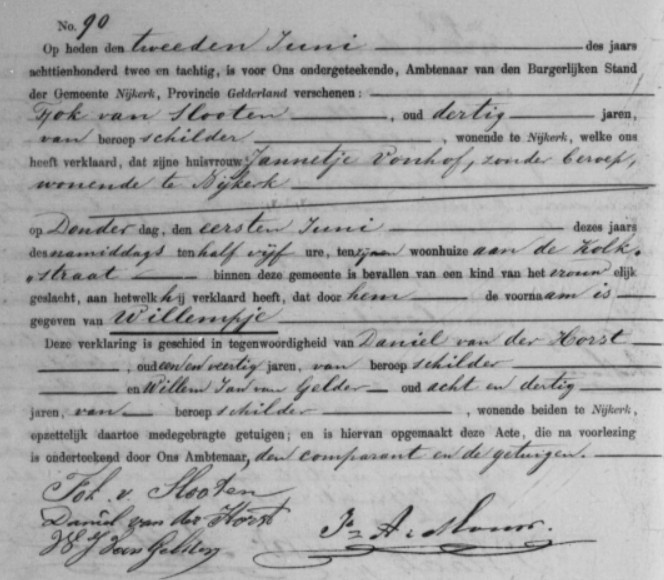 No. 90
Op heden den tweeden Juni des jaars
achttienhonderd twee en tachtig, is voor Ons ondergeteekende, Ambtenaar van den Burgerlijken Stand
der Gemeente Nijkerk, Provincie Gelderland verschenen:
Fok van Slooten, oud dertig jaren,
van beroep schilder, wonende te Nijkerk, welke ons
heeft verklaard, dat zijne huisvrouw Jannetje Vonhof, zonder beroep,
wonende te Nijkerk
op Donder dag, den eersten Juni dezes jaars
des namiddags ten half vijf ure, ten zijnen woonhuize aan de Kolk-
straat binnen deze gemeente is bevallen van een kind van het vrouwelijk
geslacht, aan hetwelk hij verklaard heeft, dat door hem de voornaam is
gegeven van Willempje
Deze verklaring is geschied in tegenwoordigheid van Daniel van der Horst
, oud een en veertig jaren, van beroep schilder
en Willem Jan van Gelder oud acht en dertig
jaren, van beroep schilder, wonende beiden te Nijkerk,
opzettelijk daartoe medegebragte getuigen; en is hiervan opgemaakt deze Acte, die na voorlezing
is onderteekend door Ons Ambtenaar, den comparant en de getuigen.
Fok. v. Slooten
Daniel van der Horst
W J van Gelder